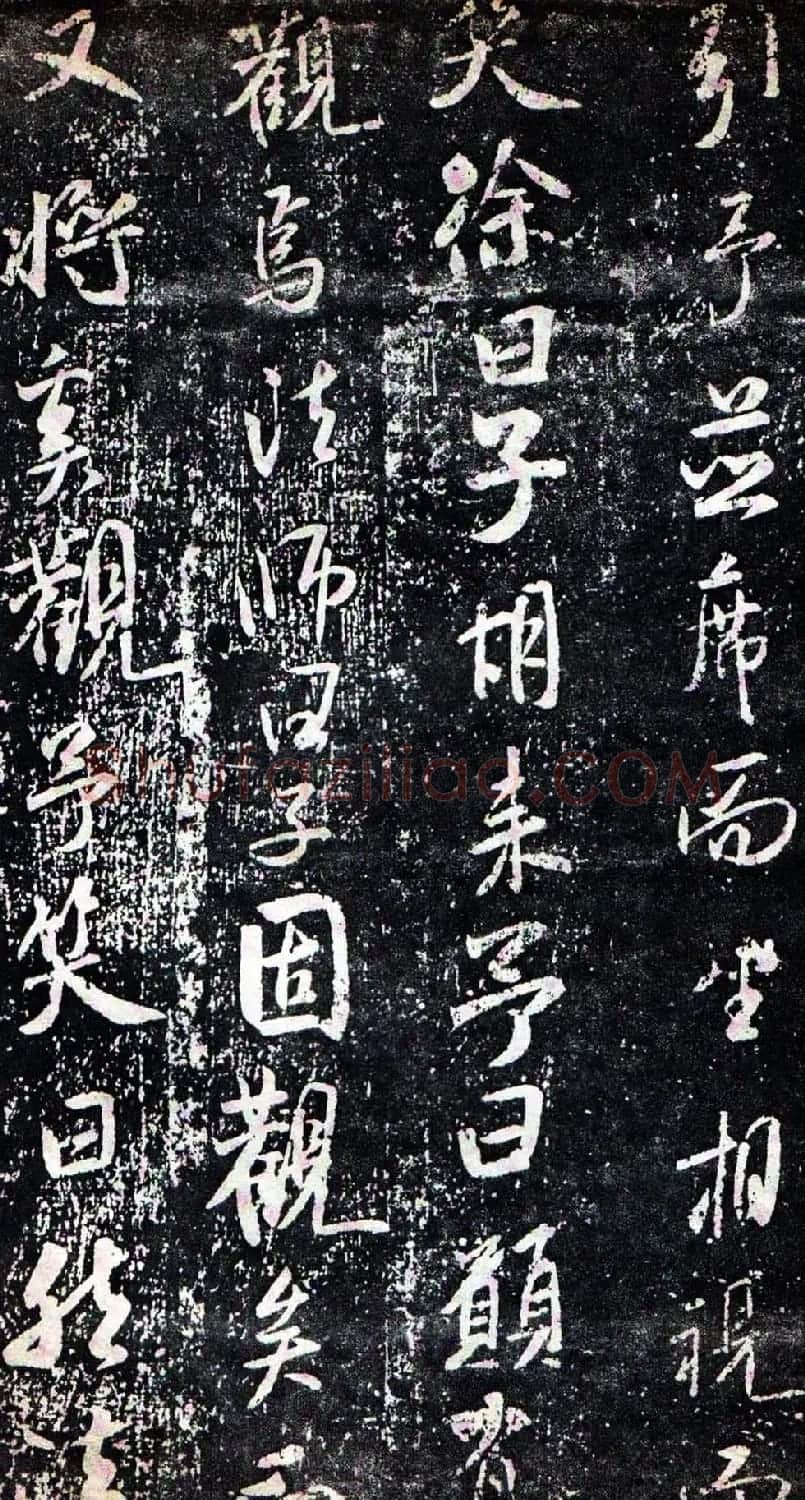 引予並席而坐相視而
笑徐曰子胡来予曰願有
觀焉法師曰子固觀矣而
又將奚觀予笑曰然法
Shufaziliao.COM